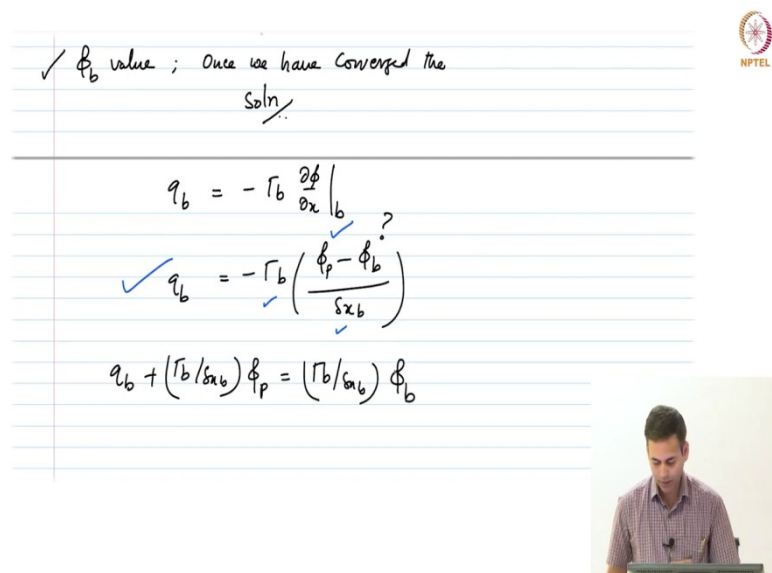 ✓ ϕ_b value ; Once we have Converged the
Soln
NPTEL
q_b = - Γ_b ∂ϕ/∂x |_b
q_b = - Γ_b ( (ϕ_p - ϕ_b) / δx_b ) ?
q_b + (Γ_b/δx_b) ϕ_p = (Γ_b/δx_b) ϕ_b